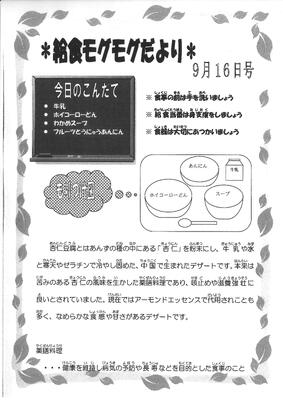 *給食モグモグだより*
9月16日号
今日のこんだて
・ 牛乳
・ ホイコーローどん
・ わかめスープ
・ フルーツとうにゅうあんにん
※ 食事の前は手を洗いましょう
※ 給食当番は身支度をしましょう
※ 食器は大切にあつかいましょう
あんにん
牛乳
ホイコーローどん
スープ
杏仁豆腐とはあんずの種の中にある「杏仁」を粉末にし、牛乳や水
と寒天やゼラチンで冷やし固めた、中国で生まれたデザートです。本来は
苦みのある杏仁の風味を生かした薬膳料理であり、咳止めや滋養強壮に
良いとされていました。現在ではアーモンドエッセンスで代用されることも
多く、なめらかな食感や甘さがあるデザートです。
薬膳料理
・・・健康を維持し病気の予防や長寿などを目的とした食事のこと